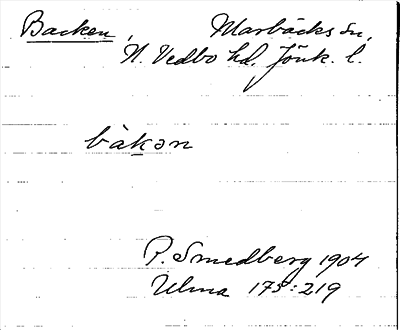 Backen, Marbäcks sn,
N. Vedbo hd, Jönk. l.
bàkən
P. Smedberg 1904
Ulma 175:219